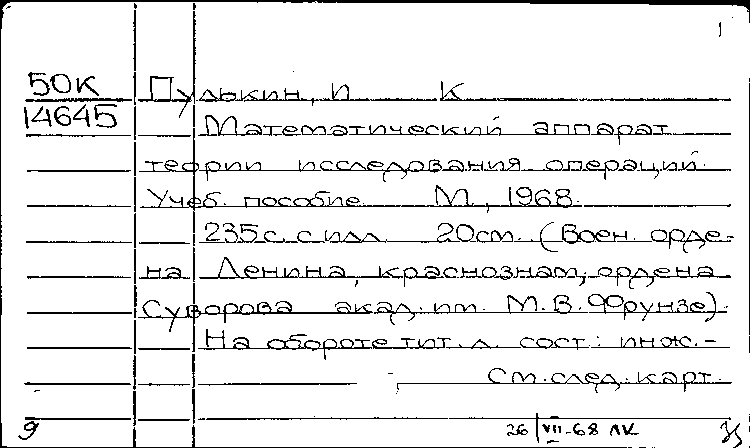 1
50К Пулькин, И К
14645
Математический аппарат
теории исследования операций.
Учеб. пособие М., 1968.
235с. с илл. 20см. (Воен. орде-
на Ленина, краснознам, ордена
Суворова акад. им. М.В.Фрунзе).
На обороте тит. л. сост.: инж.-
См. след. карт.
9 26/VII-68 ЛК